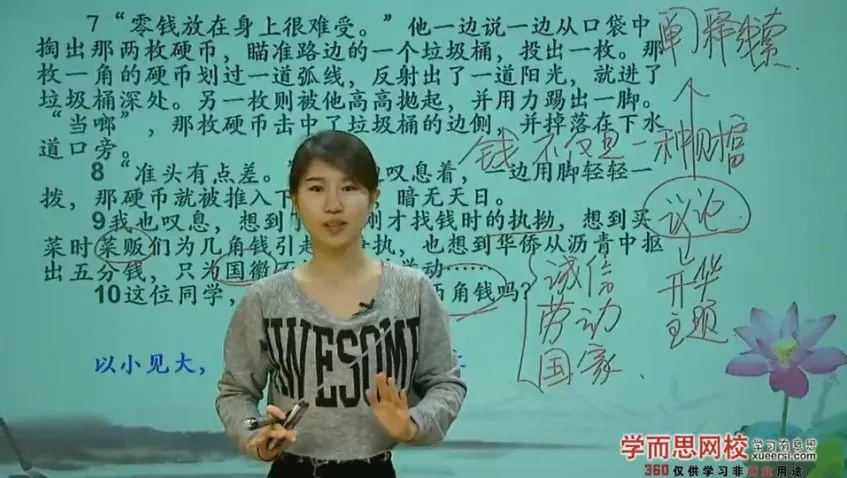 7 “零钱放在身上很难受。”他一边说一边从口袋中
掏出那两枚硬币，瞄准路边的一个垃圾桶，投出一枚。那
枚一角的硬币划过一道弧线，反射出了一道阳光，就进了
垃圾桶深处。另一枚则被他高高抛起，并用力踢出一脚。
“当啷”，那枚硬币击中了垃圾桶的边侧，并掉落在下水
道口旁。
8 “准头有点差。”叹息着，一边用脚轻轻一
拨，那硬币就被推入下，暗无天日。
9我也叹息，想到刚才找钱时的执拗，想到买
菜时菜贩们为几角钱引起执，也想到华侨从沥青中抠
出五分钱，只为国徽
10这位同学，角钱吗？
以小见大，
阐释线索
钱不仅是一种财富
议论
升华
主题
诚信
劳动
国家
AWESOME
学而思网校
学习有意思
xueersi.com
360仅供学习非商业用途